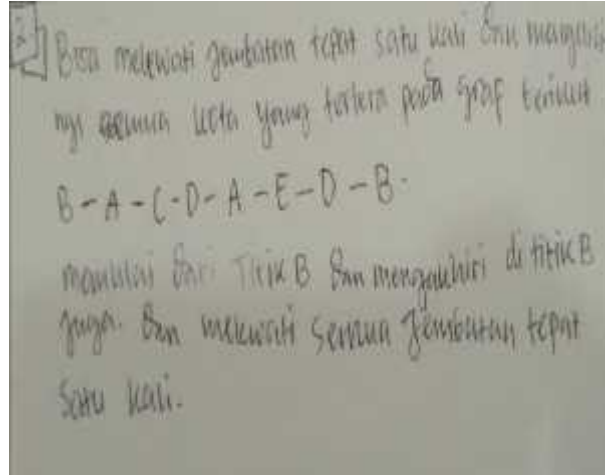 2
Bisa melewati jembatan tepat satu kali dan mengunju
ngi semua kota yang tertera pada graf berikut
B - A - C - D - A - E - D - B.
memulai dari Titik B dan mengakhiri di titik B
juga. Dan melewati semua Jembatan tepat
satu kali.